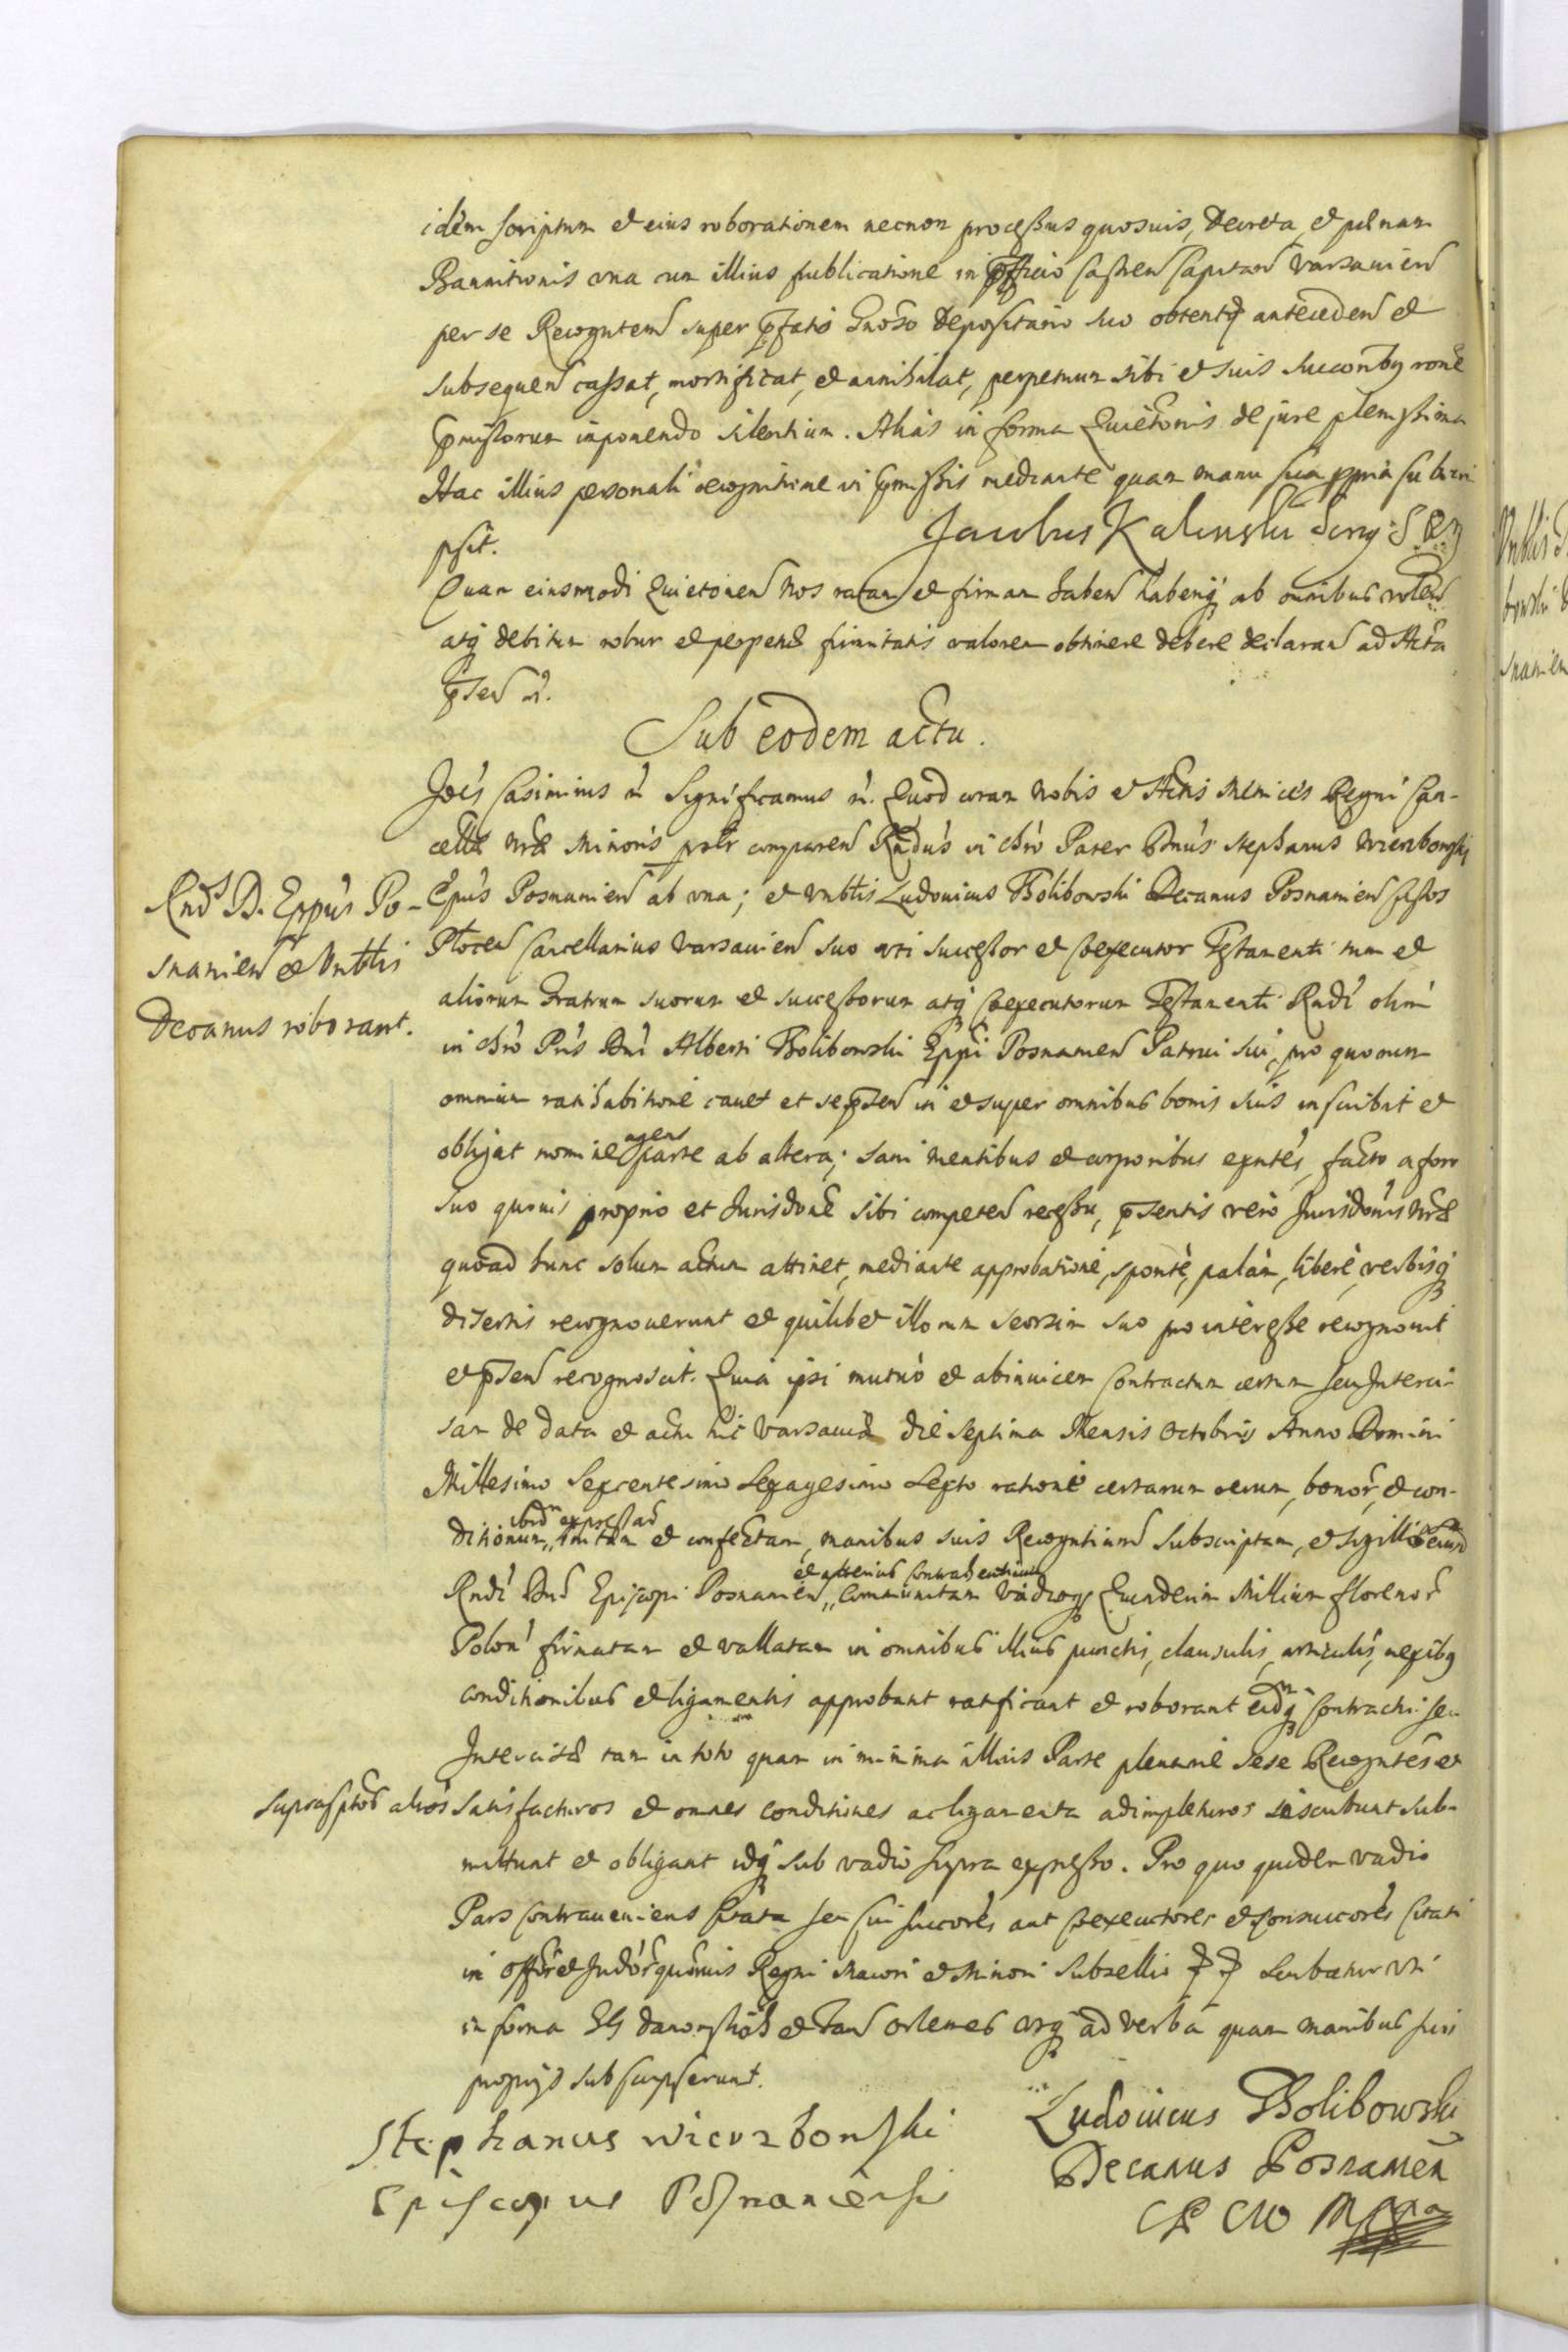 idem scriptum et eius roborationem necnon processus quosuis, Decreta, et pænam
Bannitionis una cum illius publicatione in officio Castren Capitan Varsauien
per se Recogntem super præfato Gnoso Depositario suo obtentos anteceden et
subsequen cassat, mortificat, et annihilat, perpetuum sibi et suis succoribus rone
præmissorum imponendo silentium. Alias in forma Quietonis de jure plenissima
Hac illius personali recognitione in præmissis mediante quam manu sua ppria subscri
psit.
Jacobus Kalinski
Quam eiusmodi Quietonem Nos ratam et firmam haben haberiq ab omnibus volen
atq debitum robur et perpetuæ firmitatis valorem obtinere debere declaran ad Acta
præsen
Sub eodem actu.
Joes Casimirus Significamus Quod coram Nobis et Actis Metrices Regni Can-
cellæ Nræ Minoris psolr comparen Rndus in Chro Pater Dnus Stephanus Wierzbowski
Epus Posnanien ab una; et Vnblis Ludouicus Tholibowski Decanus Posnanien Custos
Plocen Cancellarius Varsauien suo uti successor et Coexecutor Testamenti tum et
aliorum Fratrum suorum et successorum atq Coexecutorum Testamenti Rndi olim
in Chro Pris Dni Alberti Tholibowski Eppi Posnanien Patrui sui, pro quorum
omnium ratihabitione cauet et se præsen in et super omnibus bonis suis inscribit et
obligat nomine agens parte ab altera; sani mentibus et corporibus exntes, facto a foro
suo quouis proprio et Jurisdone sibi competen recessu, præsentis vero Jurisdonis Nræ
quoad hunc solum actum attinet, mediante approbatione, sponte, palam, libere, verbisq
disertis recognouerunt et quilibet illorum seorsim suo pro interesse recognouit
et præsen recognoscit. Quia ipsi mutuo et abinuicem Contractum certum seu Interci-
sam de data et actu hic Varsauiæ die septima Mensis Octobris Anno Domini
Millesimo Sexcentesimo Sexagesimo Sexto ratione certarum rerum, bonor, et con-
ditionum, ibidm expressar initam et confectam, manibus suis Recogntium subscriptam, et sigillis eiusd
Rndi Dni Episcopi Posnanien, et alterius Contrahentium communitam vadioq Quindecim Millium florenor
Polon firmatam et vallatam in omnibus illius punctis, clausulis, articulis, nexibus
conditionibus et ligamentis approbant ratificant et roborant eidmq Contractui seu
Intercisæ tam in toto quam in minima illius Parte plenarie sese Recogntes et
suprascptos alios satisfacturos et omnes conditiones ac ligamenta adimpleturos inscribunt sub-
mittunt et obligant idq sub vadio supra expresso. Pro quo quidem vadio
Pars contraueniens citata seu sui succores aut Coexecutores et Consuccores citati
in offo et Judo quouis Regni Maiori et Minori Subsellio
in forma et tan ad verba quam manibus suis
proprijs subscripserunt.
Rnds D. Eppus Po-
snanien et Vnblis
Decanus roborant.
Stephanus Wierzbowski
Episcopus Posnaniensis
Ludouicus Tholibowski
Decanus Posnanien